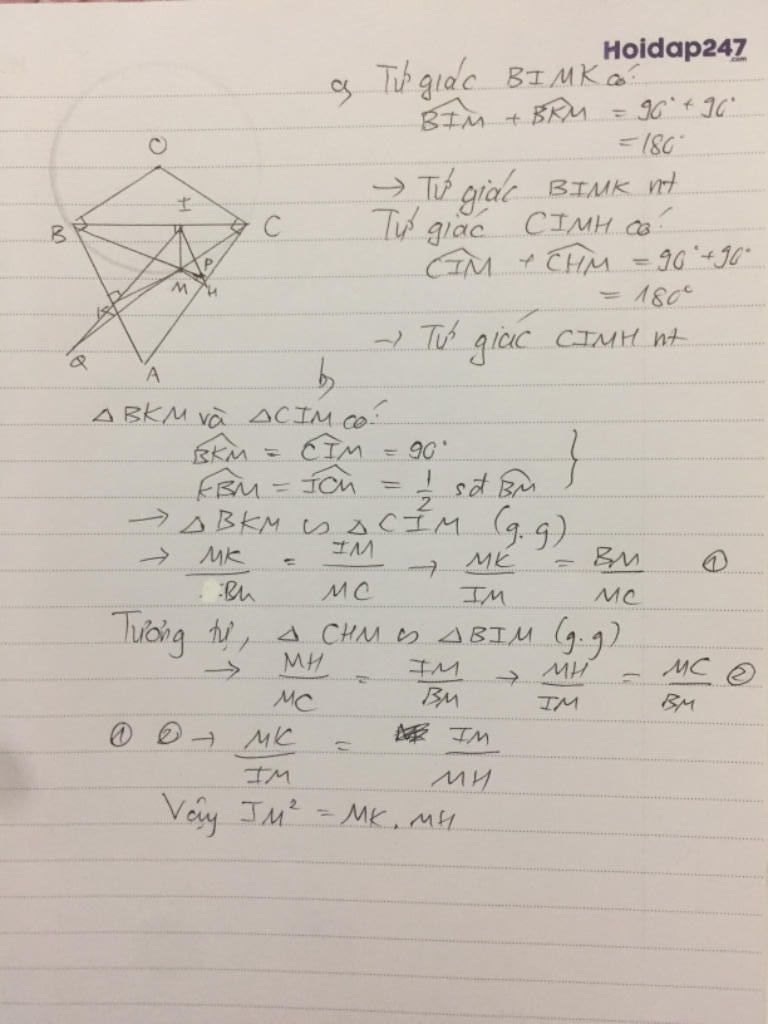 Hoidap247
.com
a) Tứ giác BIMK có:
BIM + BKM = 90° + 90°
= 180°
→ Tứ giác BIMK nt
Tứ giác CIMH có:
CIM + CHM = 90° + 90°
= 180°
→ Tứ giác CIMH nt
O
B I C
P
M H
K
Q A
b)
△BKM và △CIM có:
BKM = CIM = 90°
KBM = ICM = 1/2 sđ BM
→ △BKM ∽ △CIM (g.g)
→ MK/BM = IM/MC → MK/IM = BM/MC ①
Tương tự, △CHM ∽ △BIM (g.g)
→ MH/MC = IM/BM → MH/IM = MC/BM ②
① ② → MK/IM = IM/MH
Vậy IM² = MK.MH